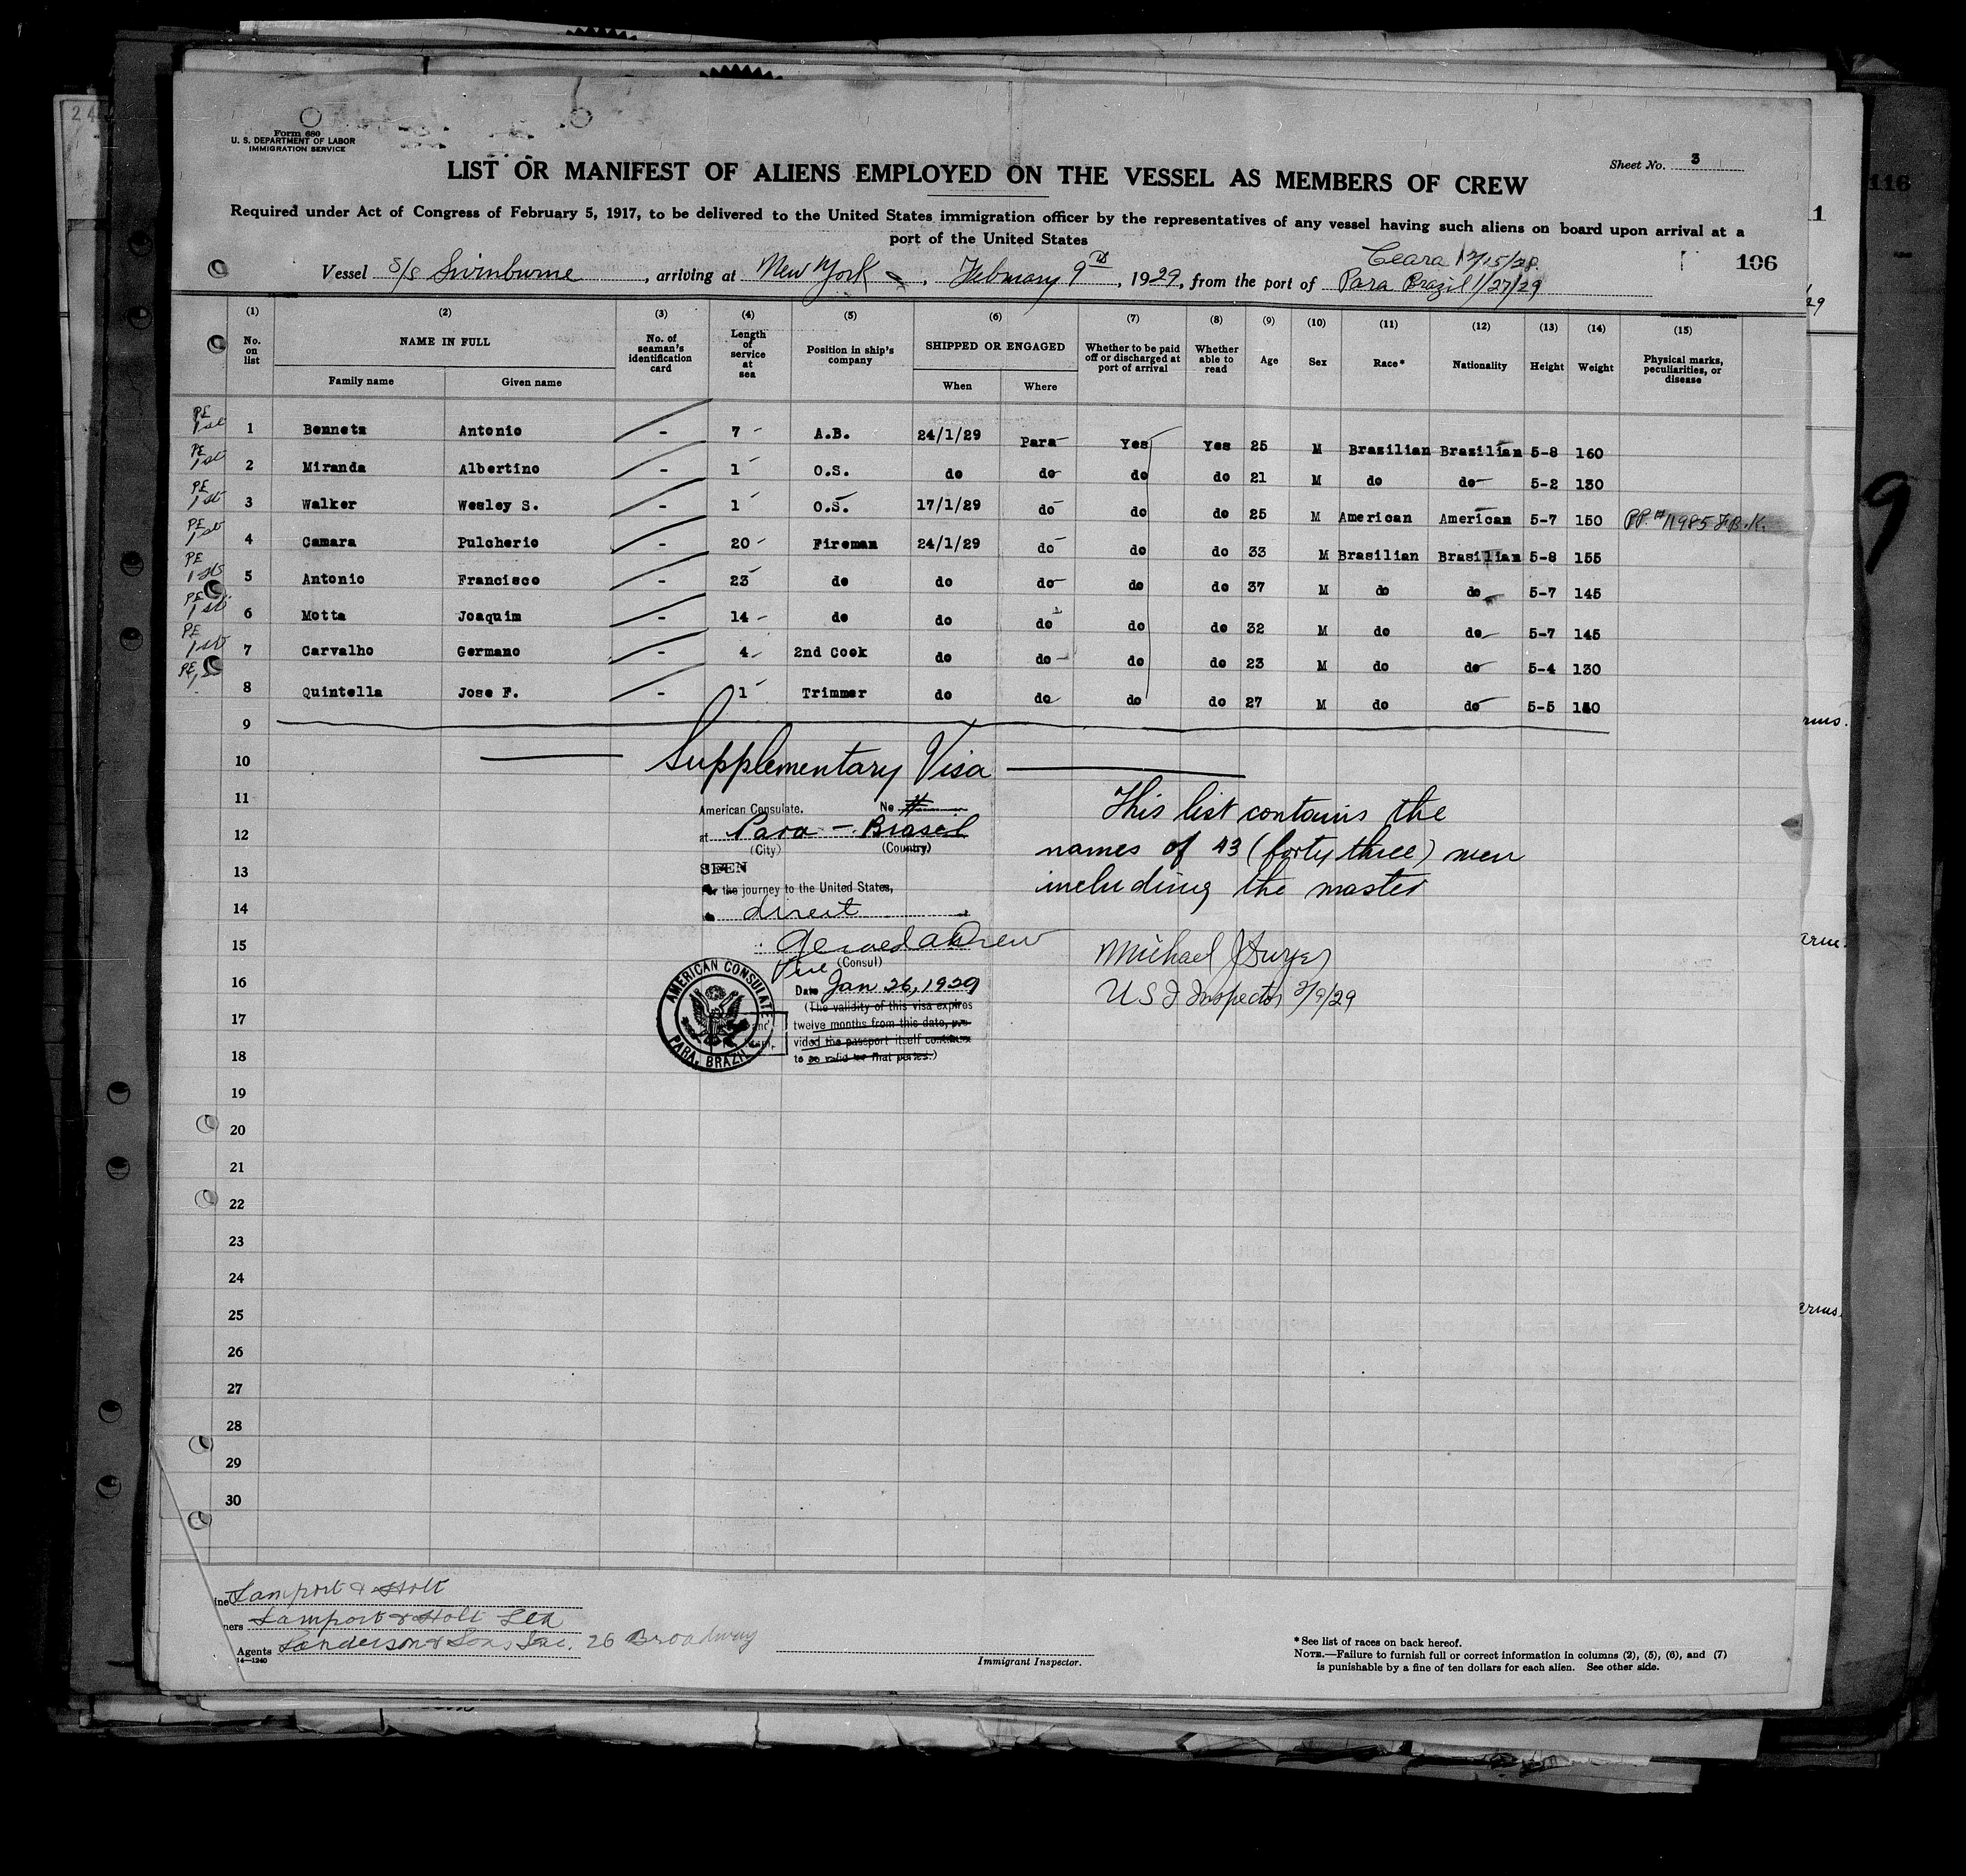 Form 680
U. S. DEPARTMENT OF LABOR
IMMIGRATION SERVICE
Sheet No. 3
LIST OR MANIFEST OF ALIENS EMPLOYED ON THE VESSEL AS MEMBERS OF CREW
Required under Act of Congress of February 5, 1917, to be delivered to the United States immigration officer by the representatives of any vessel having such aliens on board upon arrival at a
port of the United States
116
1
106
Ceara 12/15/28.
Vessel S/S Swinburne, arriving at New York, February 9th, 1929, from the port of Para Brazil 1/27/29
(1) (2) (3) (4) (5) (6) (7) (8) (9) (10) (11) (12) (13) (14) (15)
No. on list NAME IN FULL No. of seaman's identification card Length of service at sea Position in ship's company SHIPPED OR ENGAGED Whether to be paid off or discharged at port of arrival Whether able to read Age Sex Race* Nationality Height Weight Physical marks, peculiarities, or disease
Family name Given name When Where
PE 1st 1 Bennetz Antonio - 7 A.B. 24/1/29 Para Yes Yes 25 M Brasilian Brasilian 5-8 160
PE 1st 2 Miranda Albertino - 1 O.S. do do do do 21 M do do 5-2 130
PE 1st 3 Walker Wesley S. - 1 O.S. 17/1/29 do do do 25 M American American 5-7 150 PP.# 11985
PE 1st 4 Camara Pulcherio - 20 Fireman 24/1/29 do do do 33 M Brasilian Brasilian 5-8 155
PE 1st 5 Antonio Francisco - 23 do do do do do 37 M do do 5-7 145
PE 1st 6 Motta Joaquim - 14 do do do do do 32 M do do 5-7 145
PE 1st 7 Carvalho Germano - 4 2nd Cook do do do do 23 M do do 5-4 130
PE 8 Quintella Jose F. - 1 Trimmer do do do do 27 M do do 5-5
9
10 Supplementary Visa
11 American Consulate. No
12 at Para - Brasil
(City) (Country)
13 SEEN
for the journey to the United States,
14 direct
15 Gerald A Drew
Vice (Consul)
16 Date Jan 26, 1929
(The validity of this visa expires
17 twelve months from this date, pro-
vided the passport itself continues
18 to be valid for that period.)
AMERICAN CONSULATE
PARA, BRAZIL
This list contains the
names of 43 (forty three) men
including the master
Michael J
U S I Inspector 2/9/29
19
20
21
22
23
24
25
26
27
28
29
30
Lamport & Holt
Lamport & Holt Ltd
Agents Sanderson & Sons Inc. 26 Broadway
14—1240
Immigrant Inspector.
*See list of races on back hereof.
NOTE.—Failure to furnish full or correct information in columns (2), (5), (6), and (7)
is punishable by a fine of ten dollars for each alien. See other side.
9